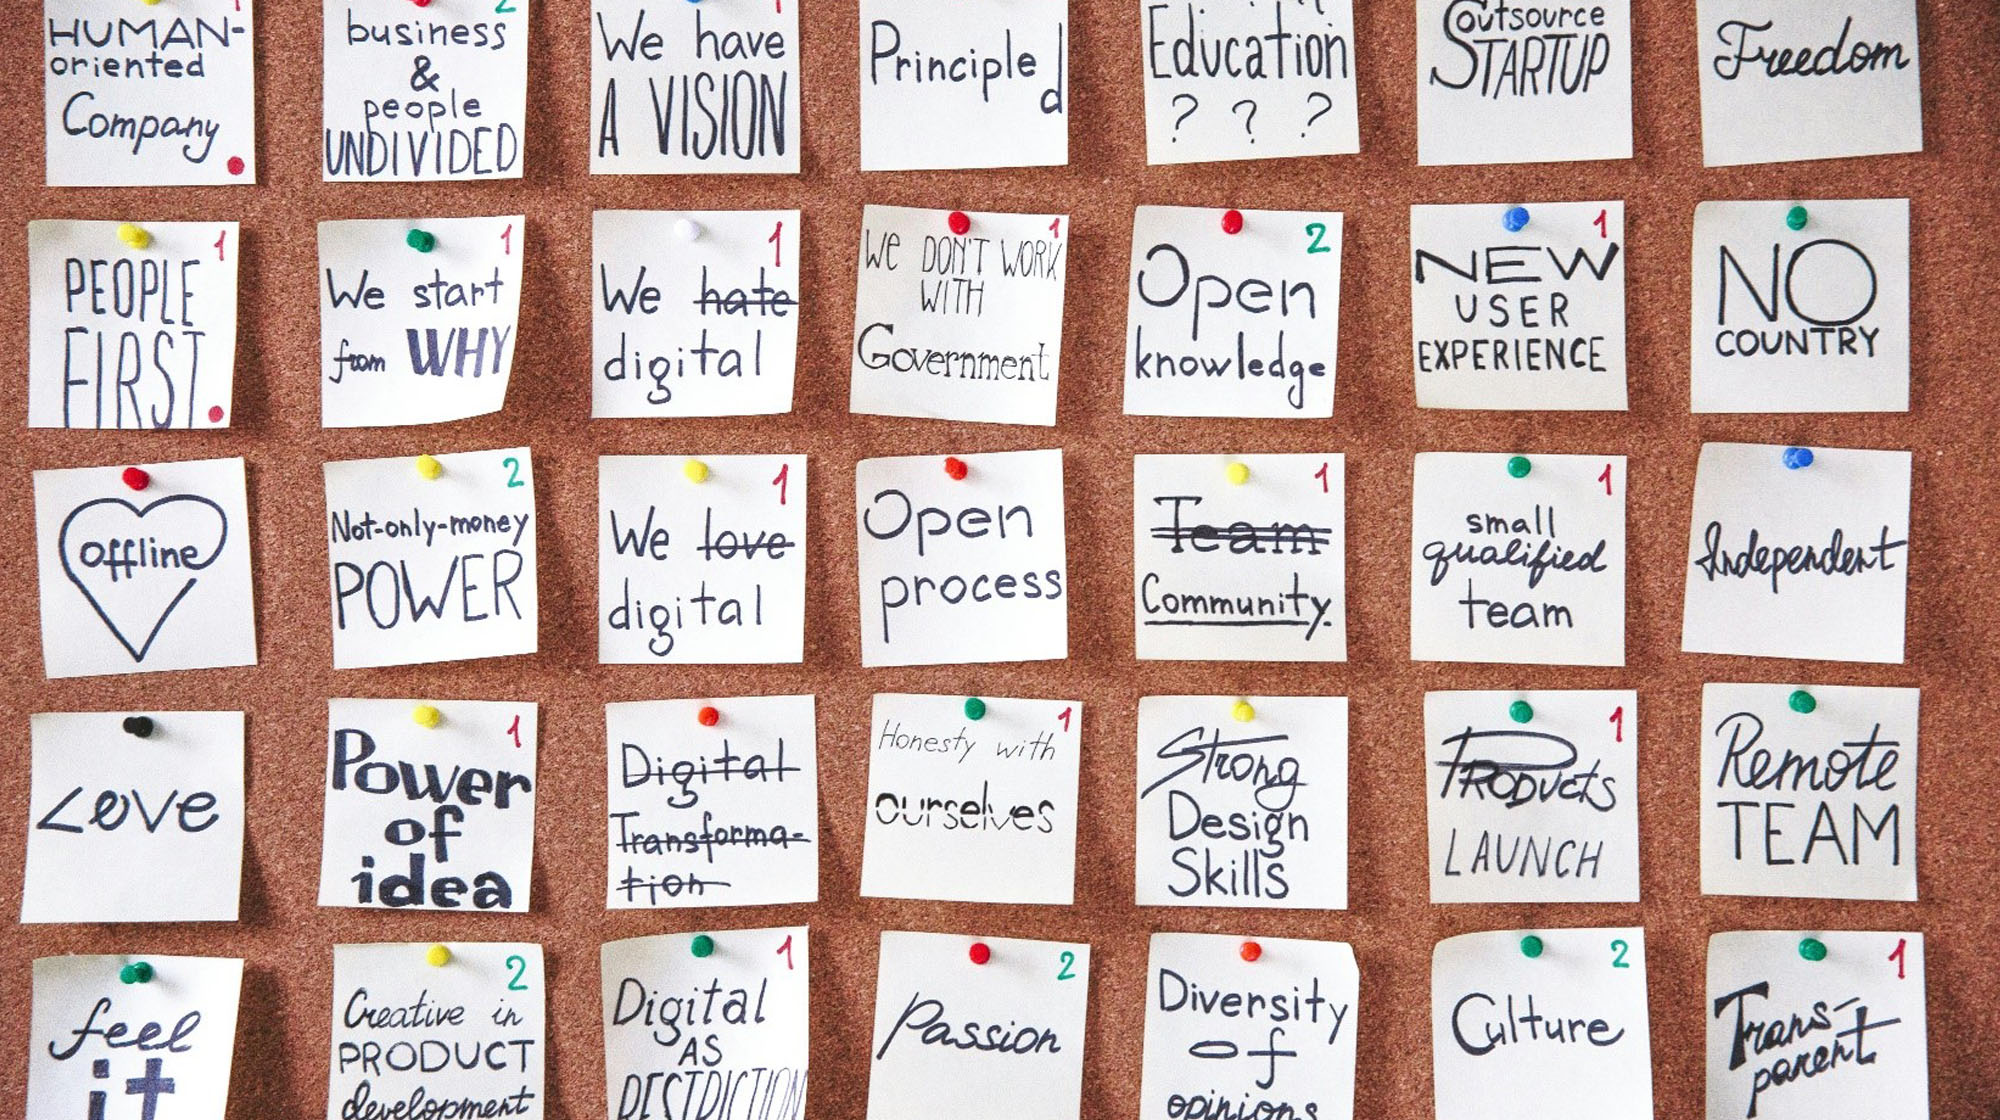 1
HUMAN-
oriented
Company
2
business
&
people
UNDIVIDED
1
We have
A VISION
Principle
d
Education
? ? ?
Outsource
STARTUP
Freedom
1
PEOPLE
FIRST.
1
We start
from WHY
1
We hate
digital
1
We DON'T WORK
WITH
Government
2
Open
knowledge
1
NEW
USER
EXPERIENCE
NO
COUNTRY
offline
2
Not-only-money
POWER
1
We love
digital
Open
process
1
Team
Community.
1
small
qualified
team
Independent
Love
1
Power
of
idea
Digital
Transforma-
tion
1
Honesty with
ourselves
Strong
Design
Skills
1
PRODUCTS
LAUNCH
Remote
TEAM
feel
it
2
Creative in
PRODUCT
development
1
Digital
AS
2
Passion
Diversity
of
opinions
2
Culture
1
Trans-
parent